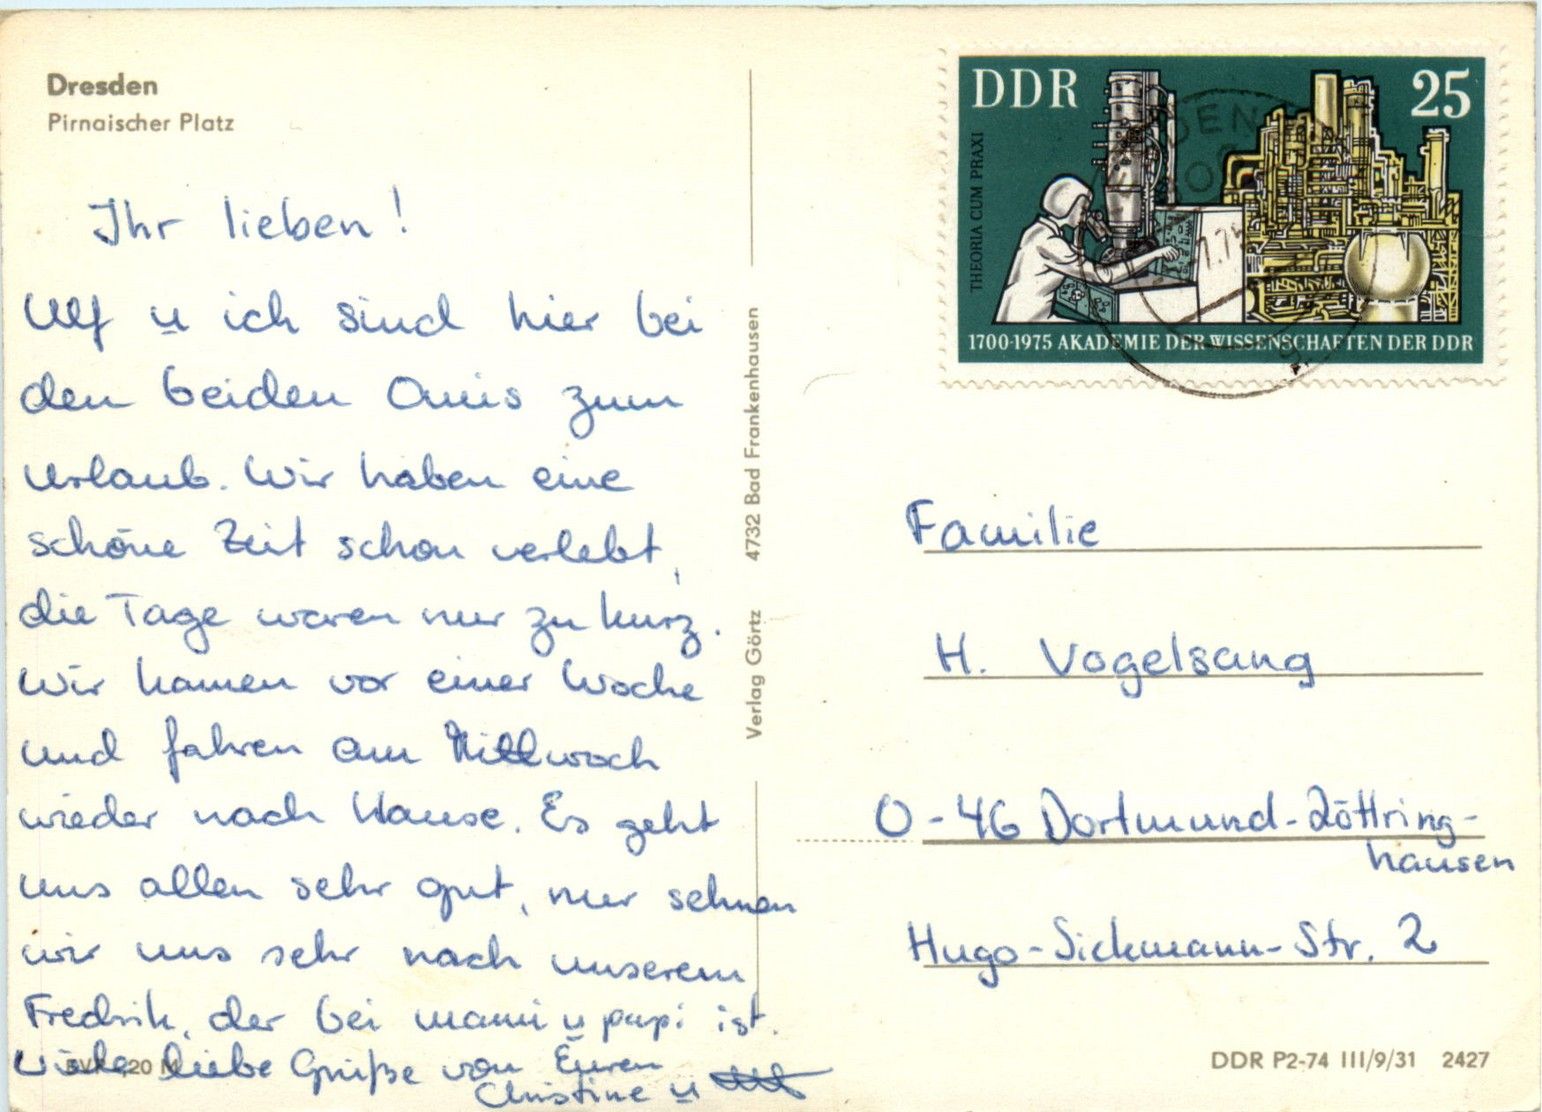 Dresden
Pirnaischer Platz
Ihr lieben!
Ulf u ich sind hier bei
den beiden Omis zum
Urlaub. Wir haben eine
schöne Zeit schon verlebt,
die Tage waren nur zu kurz.
Wir kamen vor einer Woche
und fahren am Mittwoch
wieder nach Hause. Es geht
uns allen sehr gut, nur sehnen
wir uns sehr nach unserem
Fredrik, der bei mami u papi ist.
Viele liebe Grüße von Euren
Christine u
Verlag Görtz 4732 Bad Frankenhausen
DDR 25
THEORIA CUM PRAXI
1700-1975 AKADEMIE DER WISSENSCHAFTEN DER DDR
Familie
H. Vogelsang
O-46 Dortmund-Löttring-
hausen
Hugo-Sickmann-Str. 2
DDR P2-74 III/9/31 2427